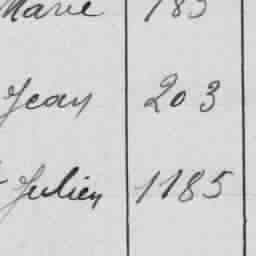 Marie 183
Jean 203
Julien 1185